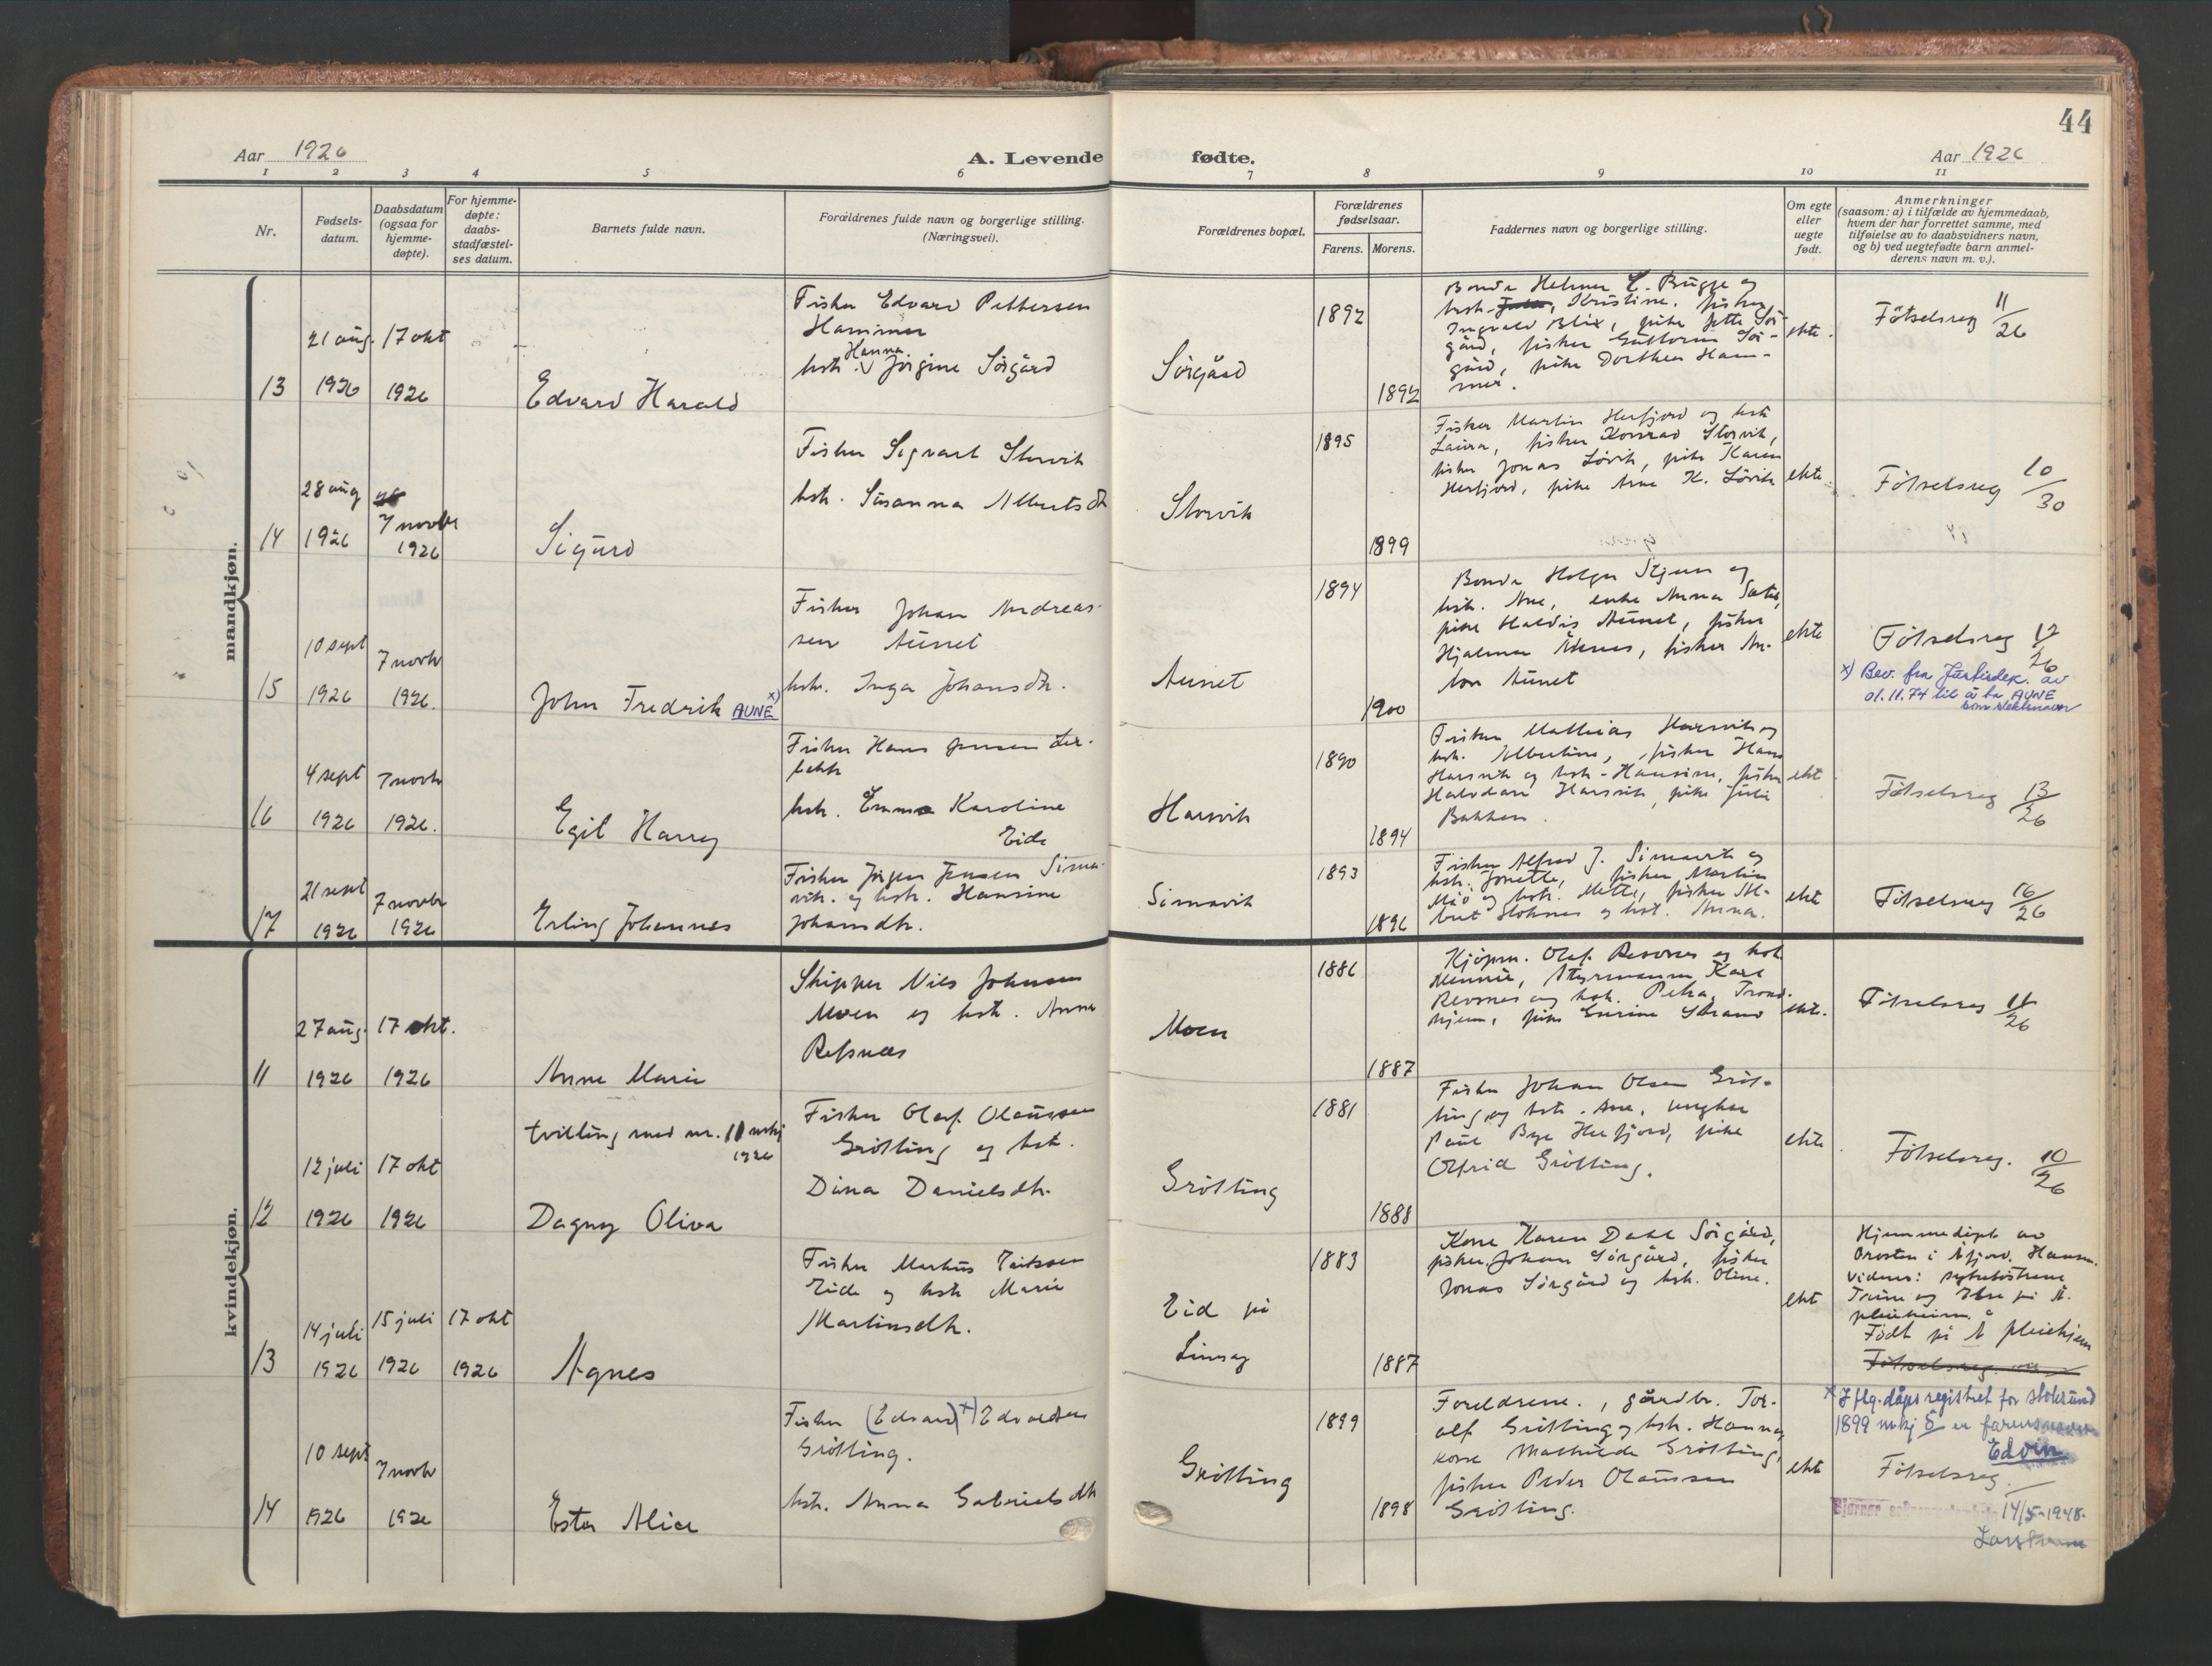 44
Aar 1926
A. Levende fødte.
Aar 1926
1 2 3 4 5 6 7 8 9 10 11
Nr.
Fødsels-
datum.
Daabsdatum
(ogsaa for
hjemme-
døpte).
For hjemme-
døpte:
daabs-
stadfæstel-
ses datum.
Barnets fulde navn.
Forældrenes fulde navn og borgerlige stilling.
(Næringsvei).
Forældrenes bopæl.
Forældrenes
fødselsaar.
Farens. Morens.
Faddernes navn og borgerlige stilling.
Om egte
eller
uegte
født.
Anmerkninger
(saasom: a) i tilfælde av hjemmedaab,
hvem der har forrettet samme, med
tilføielse av to daabsvidners navn,
og b) ved uegtefødte barn anmel-
derens navn m. v.).
mandkjøn.
13
21 aug.
1926
17 okt
1926
Edvard Harald
Fisker Edvard Pettersen
Hammer
hstr. Hanna Jörgine Sörgård
Sörgård
1892
1892
Bonde Helmer E. Brügge og
hstr. Kristine, fisker
Ingvald Blix, pike Jette Sör-
gård, fisker Guttorm Sör-
gård, pike Dorthea Ham-
mer.
ekte.
Fötselsreg 11/26
14
28 aug
1926
7 novbr
1926
Sigurd
Fisker Sigvart Storvik
hstr. Susanna Albertsdtr
Storvik
1895
1899
Fisker Martin Herfjord og hstr
Laura, fisker Konrad Storvik,
fisker Jonas Lövik, pike Karen
Herfjord, pike Arne K. Lövik
ekte.
Fötselsreg 10/30
15
10 sept
1926
7 novbr
1926.
John Fredrik AUNE x)
Fisker Johan Andreas-
sen Aunet
hstr. Inga Johansdtr.
Aunet
1894
1900
Bonde Holger Stjern og
hstr. Ane, enke Anna Sæter,
pike Haldis Aunet, fisker
Hjalmar Aunet, fisker An-
ton Aunet
ekte
Fötselsreg 12/26
x) Bev. fra Justisdep. av
01.11.74 til å ta AUNE
som slektsnavn
16
4 sept
1926
7 novbr
1926.
Egil Harry
Fisker Hans Jensen Ler-
bekk
hstr. Emma Karoline
Eide
Harsvik
1890
1894
Fisker Mathias Harsvik og
hstr. Albertine, fisker Hans
Harsvik og hstr. Hansine, fisker
Halvdan Harsvik, pike Julie
Bakken.
ekte
Fötselsreg 13/26
17
21 sept
1926
7 novbr
1926
Erling Johannes
Fisker Jörgen Jensen Sima-
vik. og hstr. Hansine
Johansdtr.
Simavik
1893
1896
Fisker Alfred J. Simavik og
hstr. Jonette, fisker Martin
Miö og hstr. Mette, fisker Al-
bert Stoknes og hst. Anna.
ekte
Fötselsreg 16/26
kvindekjøn.
11
27 aug.
1926
17 okt.
1926
Anne Marie
Skipper Nils Johnsen
Moen og hstr. Anna
Refsnæs
Moen
1886
1887
Kjöpm. Olaf Revsnes og hstr.
Minnie, Styrmann Karl
Revsnes og hstr. Petra, Trond-
hjem, pike Gurine Strand
ekte.
Fötselsreg 11/26
12
12 juli
1926
17 okt
1926
tvilling med nr. 11 mkj
1926
Dagny Oliva
Fisker Olaf Olaussen
Grötting og hstr.
Dina Danielsdtr.
Grötting
1881
1888
Fisker Johan Olsen Gröt-
ting og hstr. Ane, ungkar
Paul Bye Herfjord, pike
Olfrid Grötting.
ekte
Fötselsreg. 10/26
13
14 juli
1926
15 juli
1926
17 okt
1926
Agnes
Fisker Markus Eidssen
Eide og hstr Marie
Martinsdtr.
Eid på
Linsøy
1883
1887
Kone Karen Dahl Sörgård,
fisker Johan Sörgård, fisker
Jonas Sörgård og hstr. Oline.
ekte
Hjemmedöpt av
Presten i Åfjord. Hansen.
Vidner: sykesöstrene
på Å.
pleiehjem.
Födt på Å pleiehjem
Fötselsreg.
14
10 sept
1926
7 novbr
1926
Ester Alice
Fisker (Edvard) x) Edvardsen
Grötting.
hstr. Anna Gabrielsdtr
Grötting
1899
1898
Foreldrene., gårdbr. Tor-
alf Grötting og hstr. Hanna,
kone Mathilde Grötting,
fisker Peder Olaussen
Grötting.
ekte
x Iflg. dåpsregistret for Stoksund
1899 mkj 5 er farens navn
Edvin
Fötselsreg.
Bjørnør 14/5-1948.